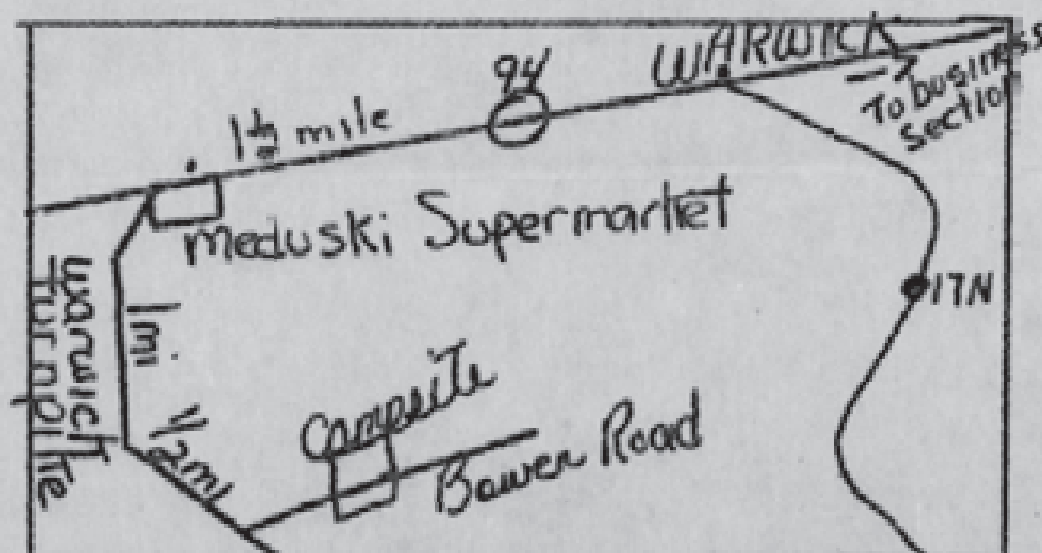 WARWICK
94
To business
section
1 1/2 mile
Meduski Supermarket
17N
Warwick
Turnpike
1 mi.
1/2 mi
Campsite
Bower Road